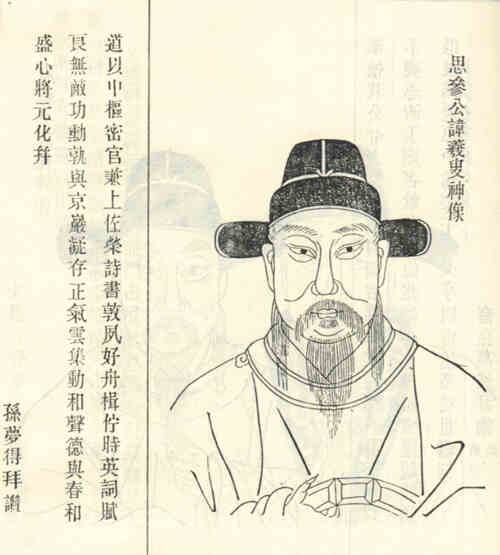 思叅公諱羲叟神像
道以中樞密官兼上佐榮詩書敦夙好舟楫佇時英詞賦
良無敵功勳孰與京巖凝存正氣雲集動和聲德與春和
盛心將元化并
孫夢得拜讚